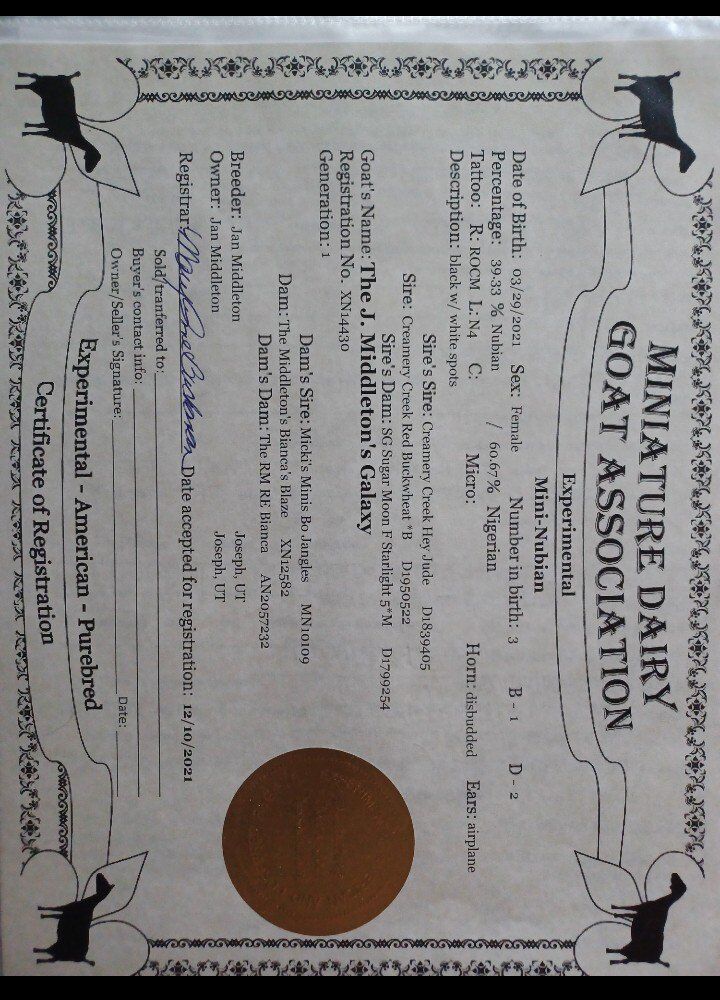 MINIATURE DAIRY
GOAT ASSOCIATION
Experimental
Mini-Nubian
Date of Birth: 03/29/2021 Sex: Female Number in birth: 3 B - 1 D - 2
Percentage: 39.33 % Nubian / 60.67% Nigerian
Tattoo: R: ROCM L: N4 C: Micro: Horn: disbudded Ears: airplane
Description: black w/ white spots
Sire's Sire: Creamery Creek Hey Jude D1839405
Sire: Creamery Creek Red Buckwheat *B D1950522
Sire's Dam: SG Sugar Moon F Starlight 5*M D1799254
Goat's Name: The J. Middleton's Galaxy
Registration No. XN14430
Generation: 1
Dam's Sire: Micki's Minis Bo Jangles MN10109
Dam: The Middleton's Bianca's Blaze XN12582
Dam's Dam: The RM RE Bianca AN2057232
Breeder: Jan Middleton Joseph, UT
Owner: Jan Middleton Joseph, UT
Registrar: Date accepted for registration: 12/10/2021
Sold/tranferred to:
Buyer's contact info:
Owner/Seller's Signature: Date:
Experimental - American - Purebred
Certificate of Registration